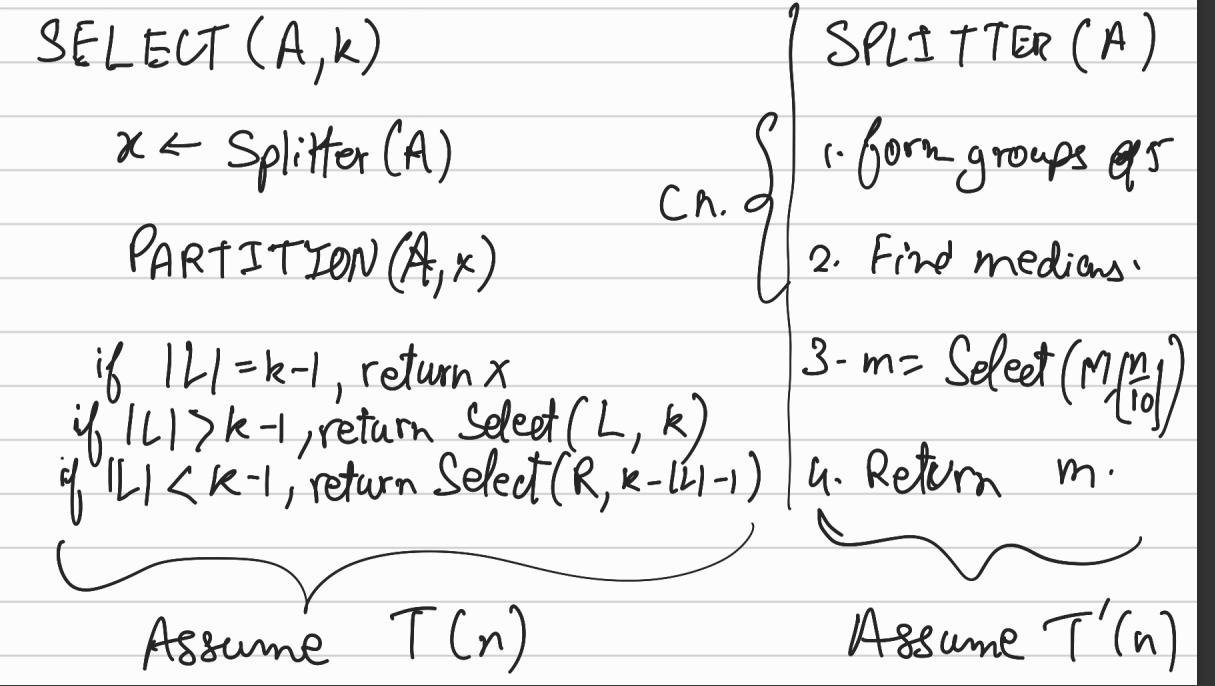 SELECT (A, k)
x ← Splitter (A)
PARTITION (A, x)
if |L| = k-1, return x
if |L| > k-1, return Select (L, k)
if |L| < k-1, return Select (R, k-|L|-1)
Assume T(n)
Cn.
SPLITTER (A)
1. form groups of 5
2. Find medians.
3- m = Select (M, [n/10])
4. Return m.
Assume T'(n)